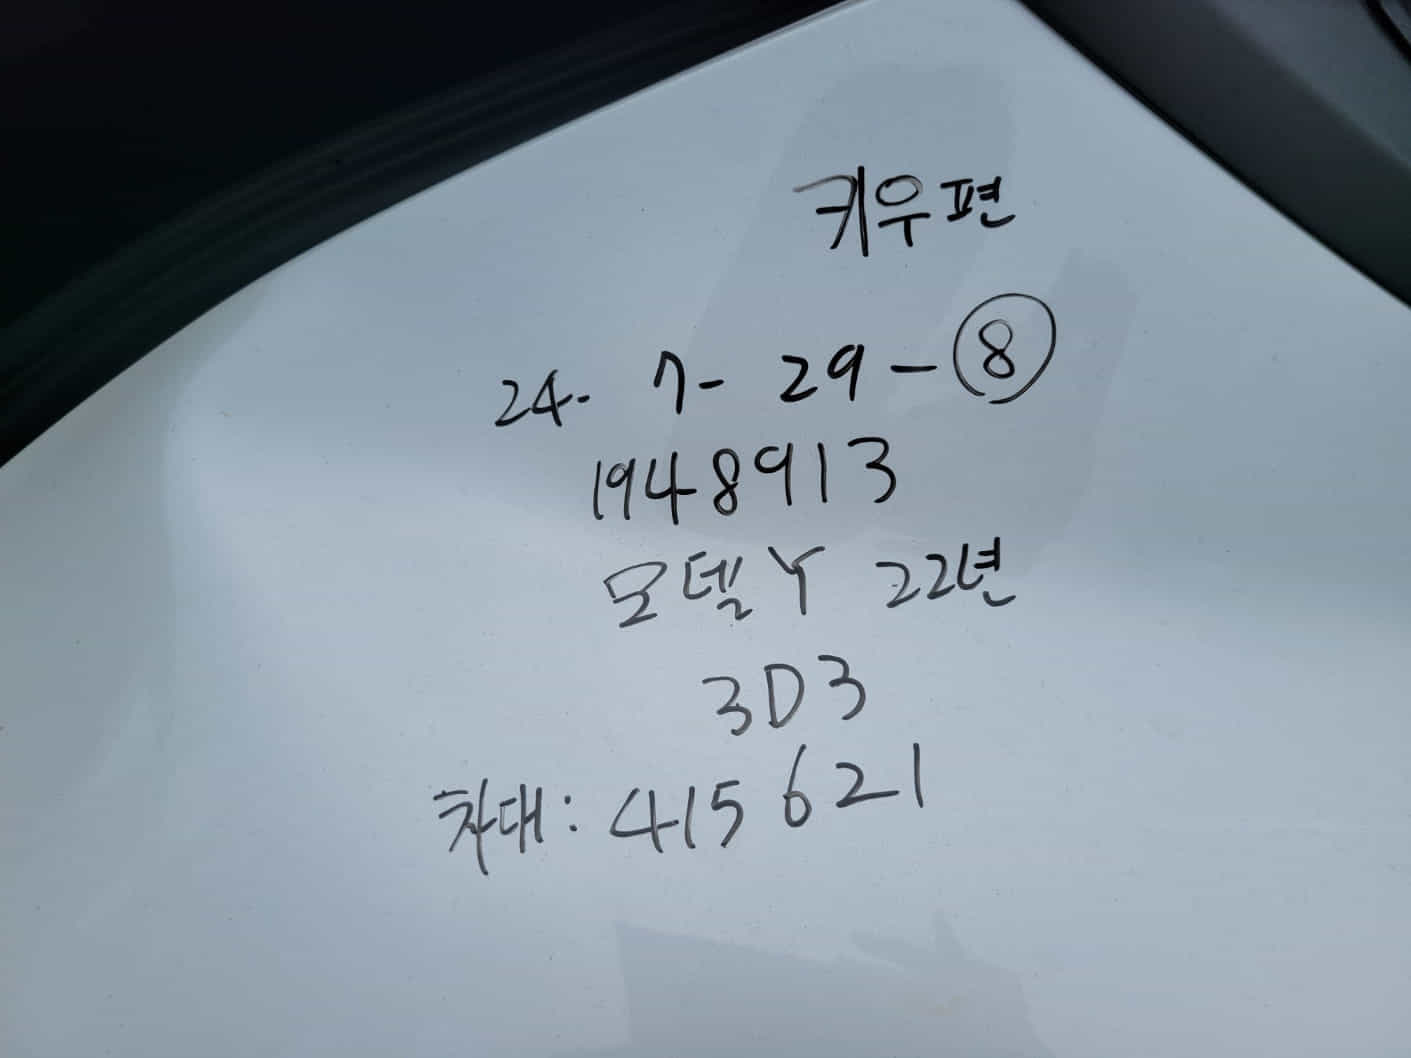 키우편
24- 7- 29-⑧
1948913
모델Y 22년
3D3
차대: 415621